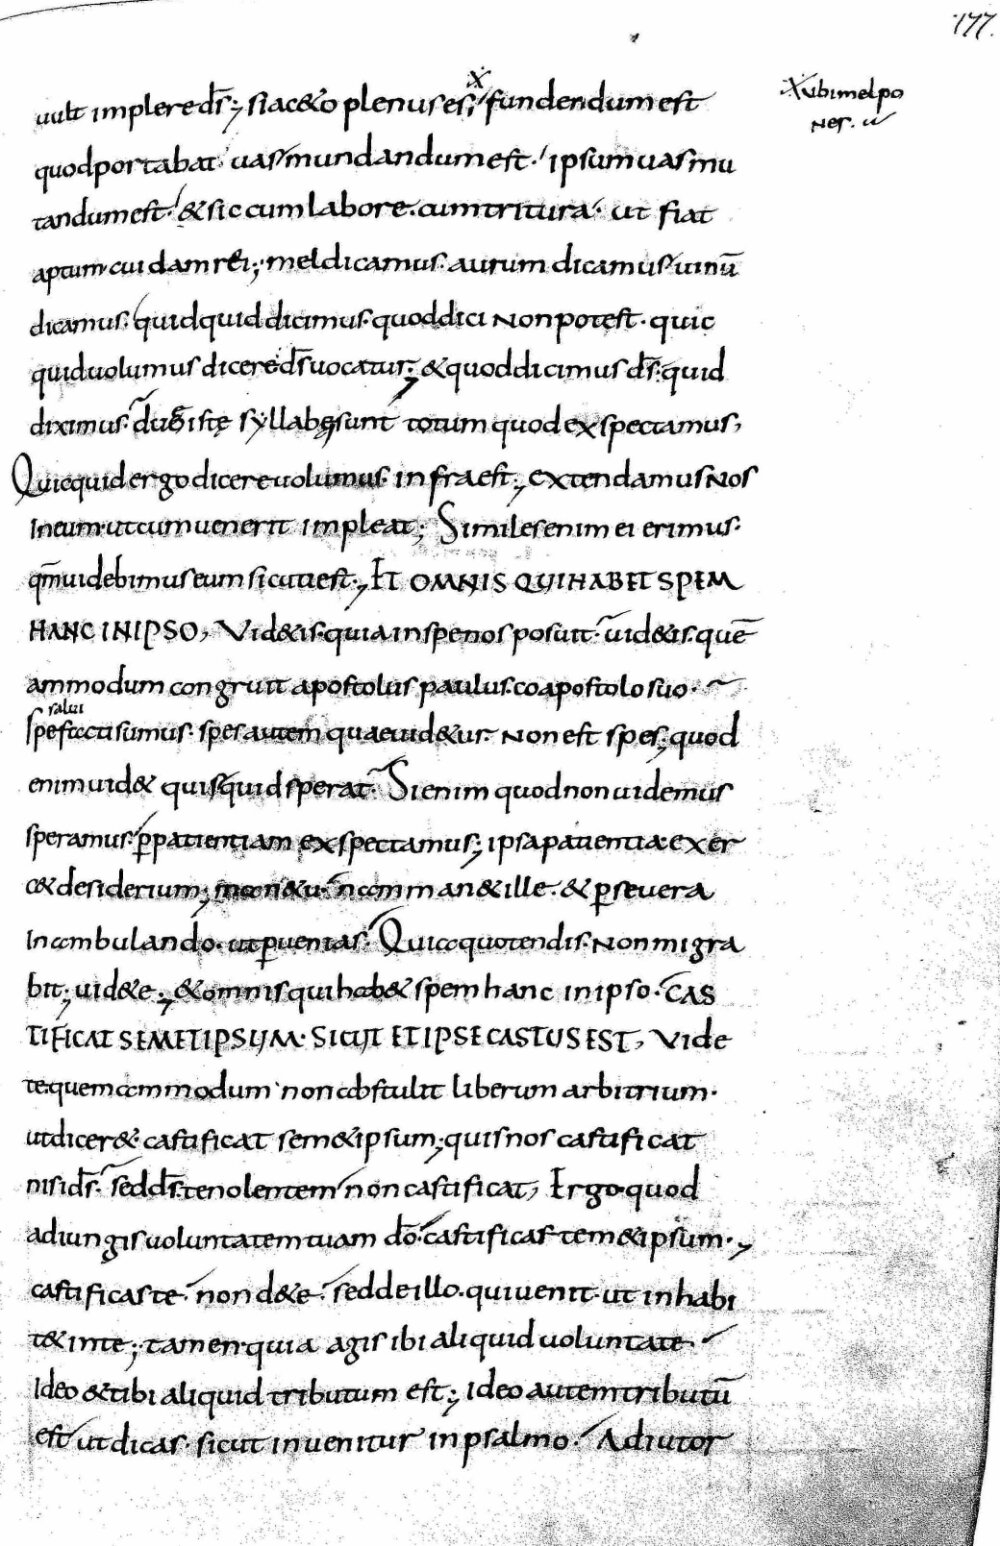 177.
uult implere ds̄; si aceto plenus es; fundendum est
Ẋ ubi mel po
nes.
quod portabat uas mundandum est. ipsum uas mu
tandum est. & sic cum labore. cum tritura. ut fiat
aptum cuidam rei; mel dicamus. aurum dicamus uinū
dicamus. quidquid dicimus quod dici non potest. quic
quid uolumus dicere ds̄ uocatur; & quod dicimus ds̄. quid
diximus. duę istę syllabę sunt totum quod exspectamus,
Quicquid ergo dicere uolumus. infra est; extendamus nos
in eum. ut cum uenerit impleat; Similes enim ei erimus.
qm̄ uidebimus eum sicuti est; ET OMNIS QUI HABET SPEM
HANC IN IPSO, Vid&is. quia in spe nos posuit. uid&is. quē
ammodum congruit apostolus paulus. coapostolo suo.
salui
Spe facti sumus. spes autem quae uid&ur. Non est spes; quod
enim uid& quis quid sperat. Si enim quod non uidemus
speramus. p̱ patientiam exspectamus; ipsa patientia exer
c& desiderium; man& tu. nam man& ille. & p̱seuera
in ambulando. ut p̱uenias. Quia quo tendis. Non migra
bit; uid&e; & omnis qui hab& spem hanc in ipso. CAS
TIFICAT SEMETIPSUM. SICUT ET IPSE CASTUS EST, Vide
te. quemammodum non abstulit liberum arbitrium.
ut dicer&. castificat sem&ipsum; quis nos castificat
nisi ds̄. sed ds̄. te nolentem non castificat, Ergo quod
adiungis uoluntatem tuam dō. castificas tem&ipsum.;
castificas te. non d&e. sed de illo. qui uenit. ut inhabi
t& in te; tamen. quia agis ibi aliquid uoluntate.
Ideo & tibi aliquid tributum est; ideo autem tributū
est ut dicas. sicut inuenitur in psalmo. Adiutor